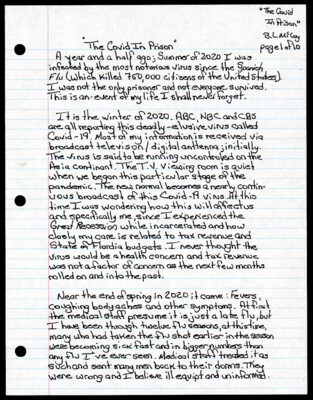 "The Covid
In Prison"
B.L. McCoy
page 1 of 10
"The Covid In Prison"
A year and a half ago; Summer of 2020 I was
infected by the most notorious virus since the Spanish
Flu (which killed 750,000 citizens of the United States).
I was not the only prisoner and not everyone survived.
This is an event of my life I shall never forget.
It is the winter of 2020, ABC, NBC and CBS
are all reporting this deadly-elusive virus called
Covid-19. Most of my information is received via
broadcast television/digital antenna; initially.
The virus is said to be running uncontrolled on the
Asia continent. The T.V. viewing room is quiet
when we began this particular stage of the
pandemic. The new normal becomes a nearly contin-
uous broadcast of this Covid-19 virus. At this
time I was wondering how this will affect us
and specifically me, since I experienced the
Great Recession while incarcerated and how
closely my care is related to tax revenue and
State of Flordia budgets. I never thought the
virus would be a health concern and tax revenue
was not a factor of concern as the next few months
rolled on and into the past.
Near the end of spring in 2020 it came: Fevers,
coughing body aches and other symptoms. At first
the medical staff presume it is just a late flu, but
I have been through twelve flu seasons, at this time,
many who had taken the flu shot earlier in the season
were becoming sick fast and in bigger numbers than
any flu I've ever seen. Medical staff treated it as
such and sent many men back to their dorms. They
were wrong and I believe ill equipt and uninformed.